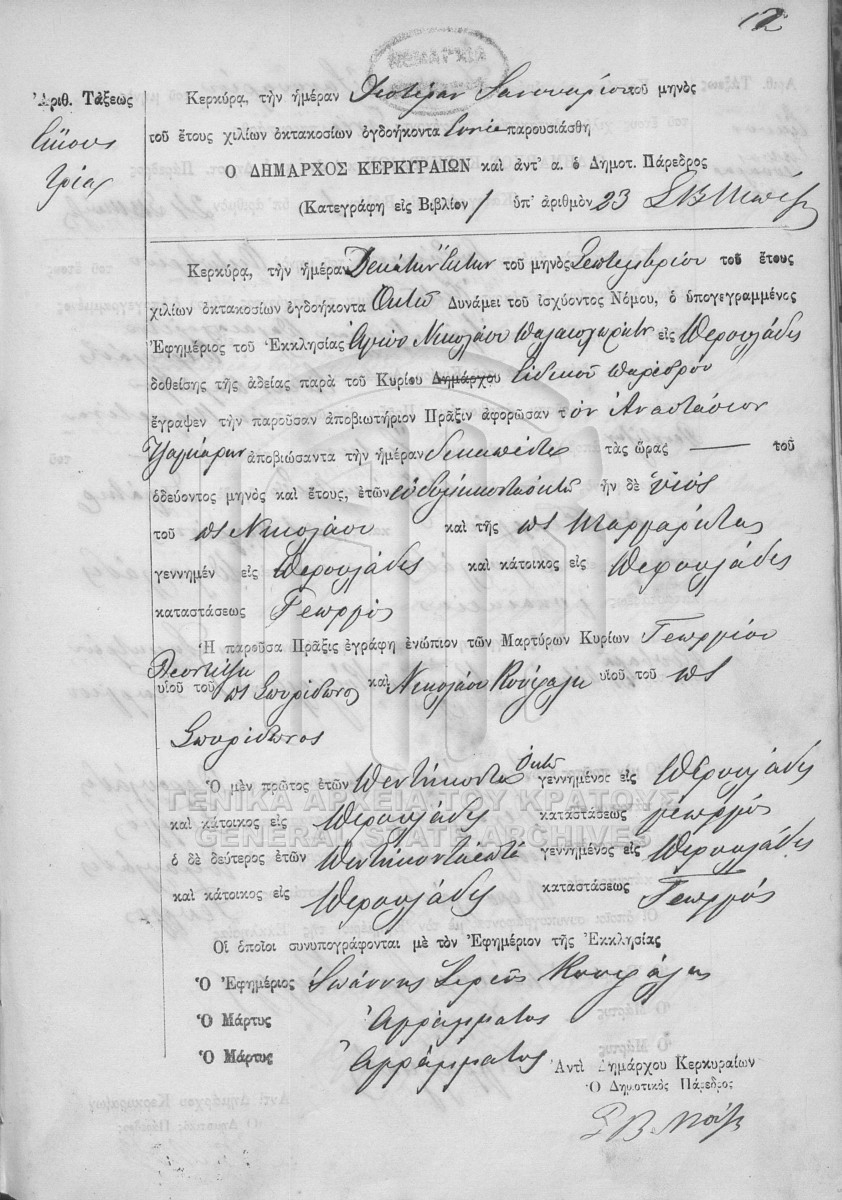 12
Ἀριθ. Τάξεως
Εἴκοσι
τρία
Κερκύρα, τὴν ἡμέραν Δευτέραν Ἰανουαρίου τοῦ μηνὸς
τοῦ ἔτους χιλίων ὀκτακοσίων ὀγδοήκοντα ἐννέα παρουσιάσθη
Ο ΔΗΜΑΡΧΟΣ ΚΕΡΚΥΡΑΙΩΝ καὶ ἀντ' α. ὁ Δημοτ. Πάρεδρος
(Κατεγράφη εἰς Βιβλίον 1 ὑπ' ἀριθμὸν 23
Κερκύρα, τὴν ἡμέραν Δεκάτην ἕκτην τοῦ μηνὸς Σεπτεμβρίου τοῦ ἔτους
χιλίων ὀκτακοσίων ὀγδοήκοντα Ὀκτὼ Δυνάμει τοῦ ἰσχύοντος Νόμου, ὁ ὑπογεγραμμένος
Ἐφημέριος τοῦ Ἐκκλησίας Ἁγίου Νικολάου εἰς Περουλάδες
δοθείσης τῆς ἀδείας παρὰ τοῦ Κυρίου Δημάρχου εἰδικοῦ παρέδρου
ἔγραψεν τὴν παροῦσαν ἀποβιωτήριον Πρᾶξιν ἀφορῶσαν τὸν Ἀναστάσιον
ἀποβιώσαντα τὴν ἡμέραν δεκαπέντε τὰς ὥρας — τοῦ
ὁδεύοντος μηνὸς καὶ ἔτους, ἐτῶν ἑβδομήκοντα ὀκτὼ ἦν δὲ υἱὸς
τοῦ πς Νικολάου καὶ τῆς πς Μαργαρίτας
γεννημέν εἰς Περουλάδες καὶ κάτοικος εἰς Περουλάδες
καταστάσεως Γεωργὸς
Ἡ παροῦσα Πρᾶξις ἐγράφη ἐνώπιον τῶν Μαρτύρων Κυρίων Γεωργίου
υἱοῦ τοῦ πς Σπυρίδωνος καὶ Νικολάου Κούρκουλη υἱοῦ τοῦ πς
Σπυρίδωνος
Ὁ μὲν πρῶτος ἐτῶν Πεντήκοντα Ὀκτὼ γεννημένος εἰς Περουλάδες
καὶ κάτοικος εἰς Περουλάδες καταστάσεως γεωργὸς
ὁ δὲ δεύτερος ἐτῶν Πεντήκοντα ἑπτὰ γεννημένος εἰς Περουλάδες
καὶ κάτοικος εἰς Περουλάδες καταστάσεως Γεωργὸς
Οἱ ὁποῖοι συνυπογράφονται μὲ τὸν Ἐφημέριον τῆς Ἐκκλησίας
Ὁ Ἐφημέριος Ἰωάννης Ἱερεὺς
Ὁ Μάρτυς Ἀγράμματος
Ὁ Μάρτυς Ἀγράμματος
Ἀντὶ Δημάρχου Κερκυραίων
Ὁ Δημοτικὸς Πάρεδρος
ΓΕΝΙΚΑ ΑΡΧΕΙΑ ΤΟΥ ΚΡΑΤΟΥΣ
GENERAL STATE ARCHIVES